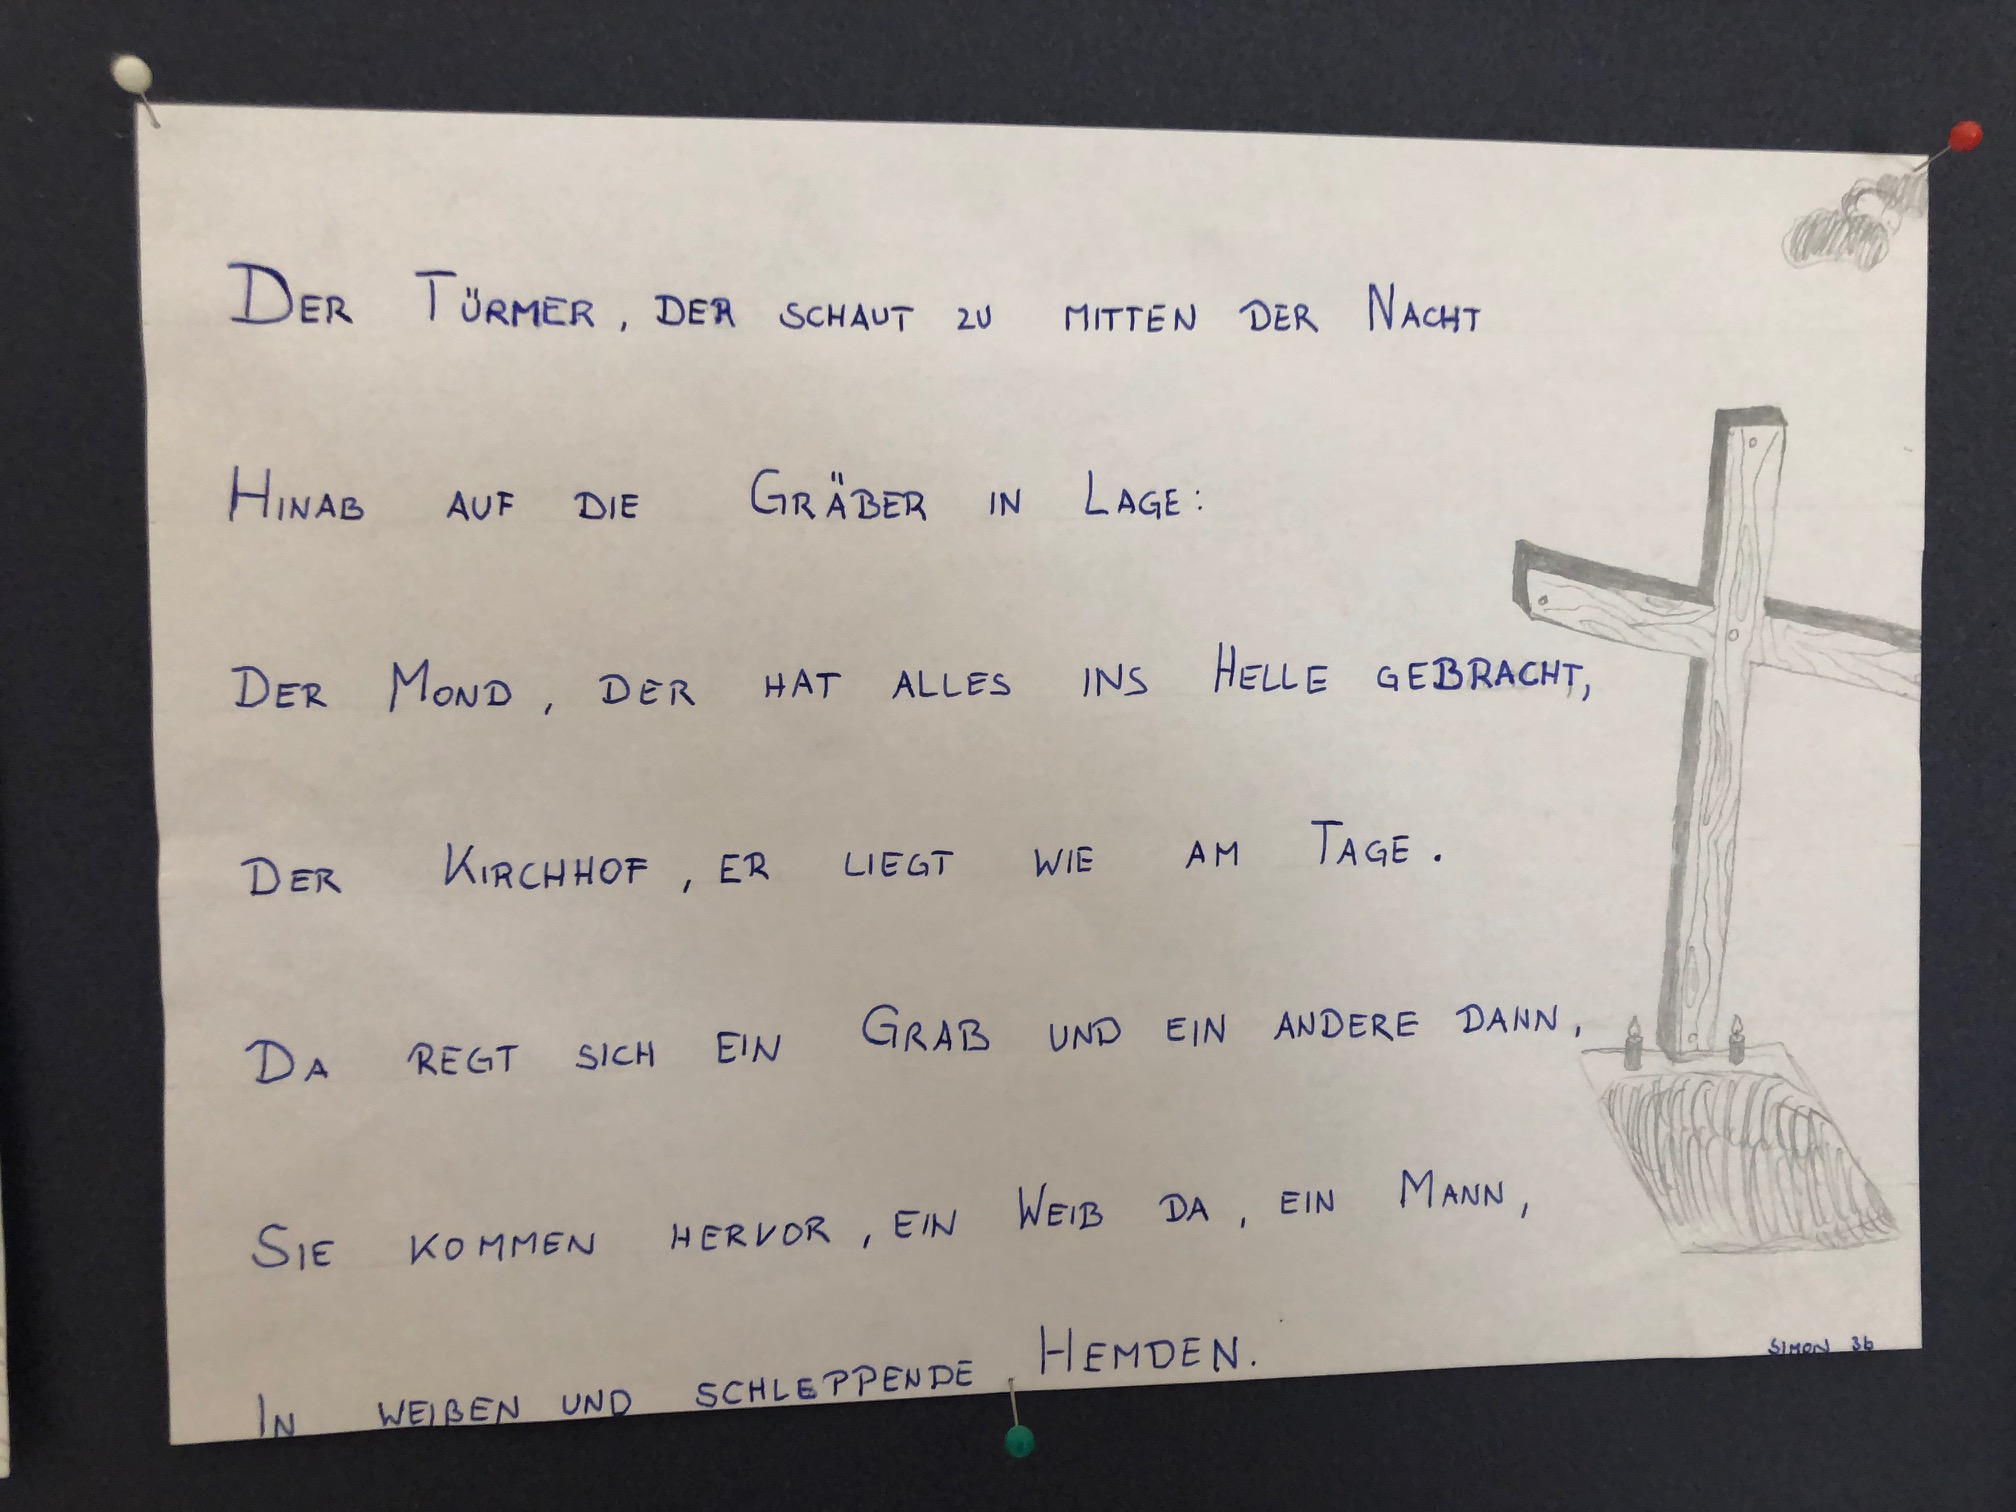 DER TÜRMER, DER SCHAUT ZU MITTEN DER NACHT
HINAB AUF DIE GRÄBER IN LAGE:
DER MOND, DER HAT ALLES INS HELLE GEBRACHT,
DER KIRCHHOF, ER LIEGT WIE AM TAGE.
DA REGT SICH EIN GRAB UND EIN ANDERE DANN,
SIE KOMMEN HERVOR, EIN WEIB DA, EIN MANN,
IN WEIßEN UND SCHLEPPENDE HEMDEN.
SIMON 3b